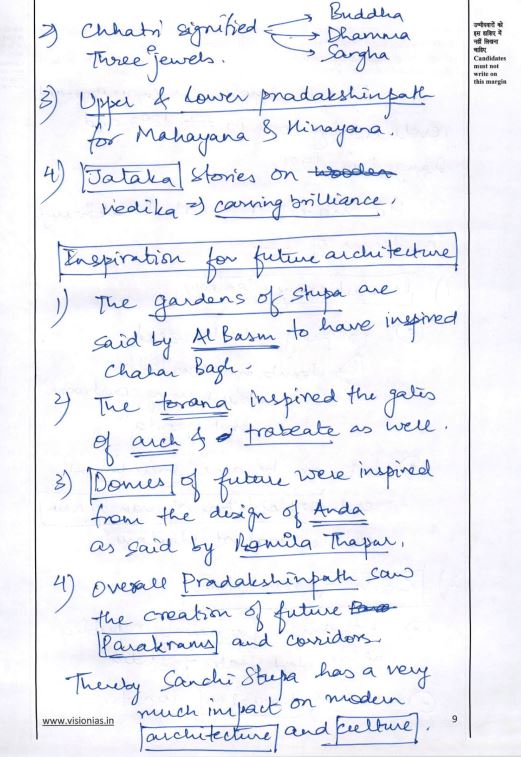 2) Chhatri signified → Buddha
→ Dhamma
→ Sangha
Three jewels.
3) Upper & Lower pradakshinpath
for Mahayana & Hinayana.
4) Jataka stories on wooden
vedika ⇒ carving brilliance.
Inspiration for future architecture
1) The gardens of stupa are
said by Al Basm to have inspired
Chahar Bagh.
2) The torana inspired the gates
of arch & trabeate as well.
3) Domes of future were inspired
from the design of Anda
as said by Romila Thapar.
4) Overall Pradakshinpath saw
the creation of future
Parakrams and corridors
Thereby Sanchi Stupa has a very
much impact on modern
architecture and culture.
उम्मीदवारों को
इस हाशिए में
नहीं लिखना
चाहिए
Candidates
must not
write on
this margin
www.visionias.in
9